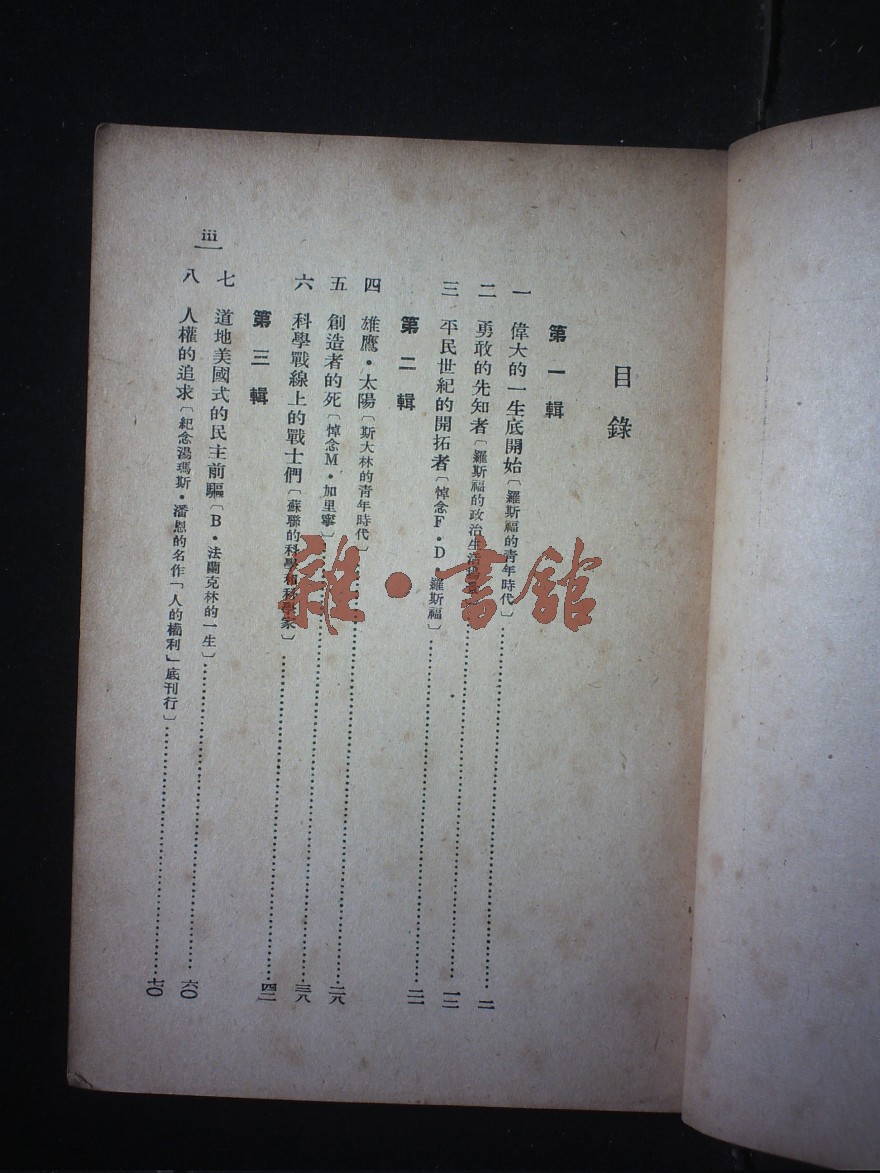 目錄
第一輯
一 偉大的一生底開始〔羅斯福的青年時代〕……二
二 勇敢的先知者〔羅斯福的政治生活……一二
三 平民世紀的開拓者〔悼念F·D·羅斯福〕……二二
第二輯
四 雄鷹·太陽〔斯大林的青年時代〕……二八
五 創造者的死〔悼念M·加里寧〕……三八
六 科學戰線上的戰士們〔蘇聯的科學和科學家〕……四二
第三輯
七 道地美國式的民主前驅〔B·法蘭克林的一生〕……六〇
八 人權的追求〔紀念湯瑪斯·潘恩的名作「人的權利」底刊行〕……七〇
iii
雜·書館